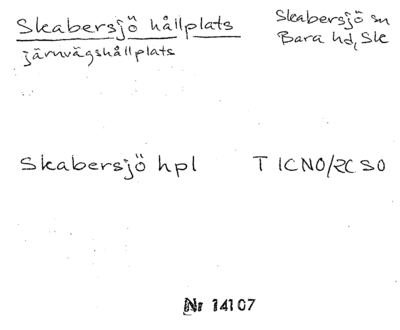 Skabersjö hållplats
järnvägshållplats
Skabersjö sn
Bara hd, Ske
Skabersjö hpl T 1CNO/2CSO
Nr 14107